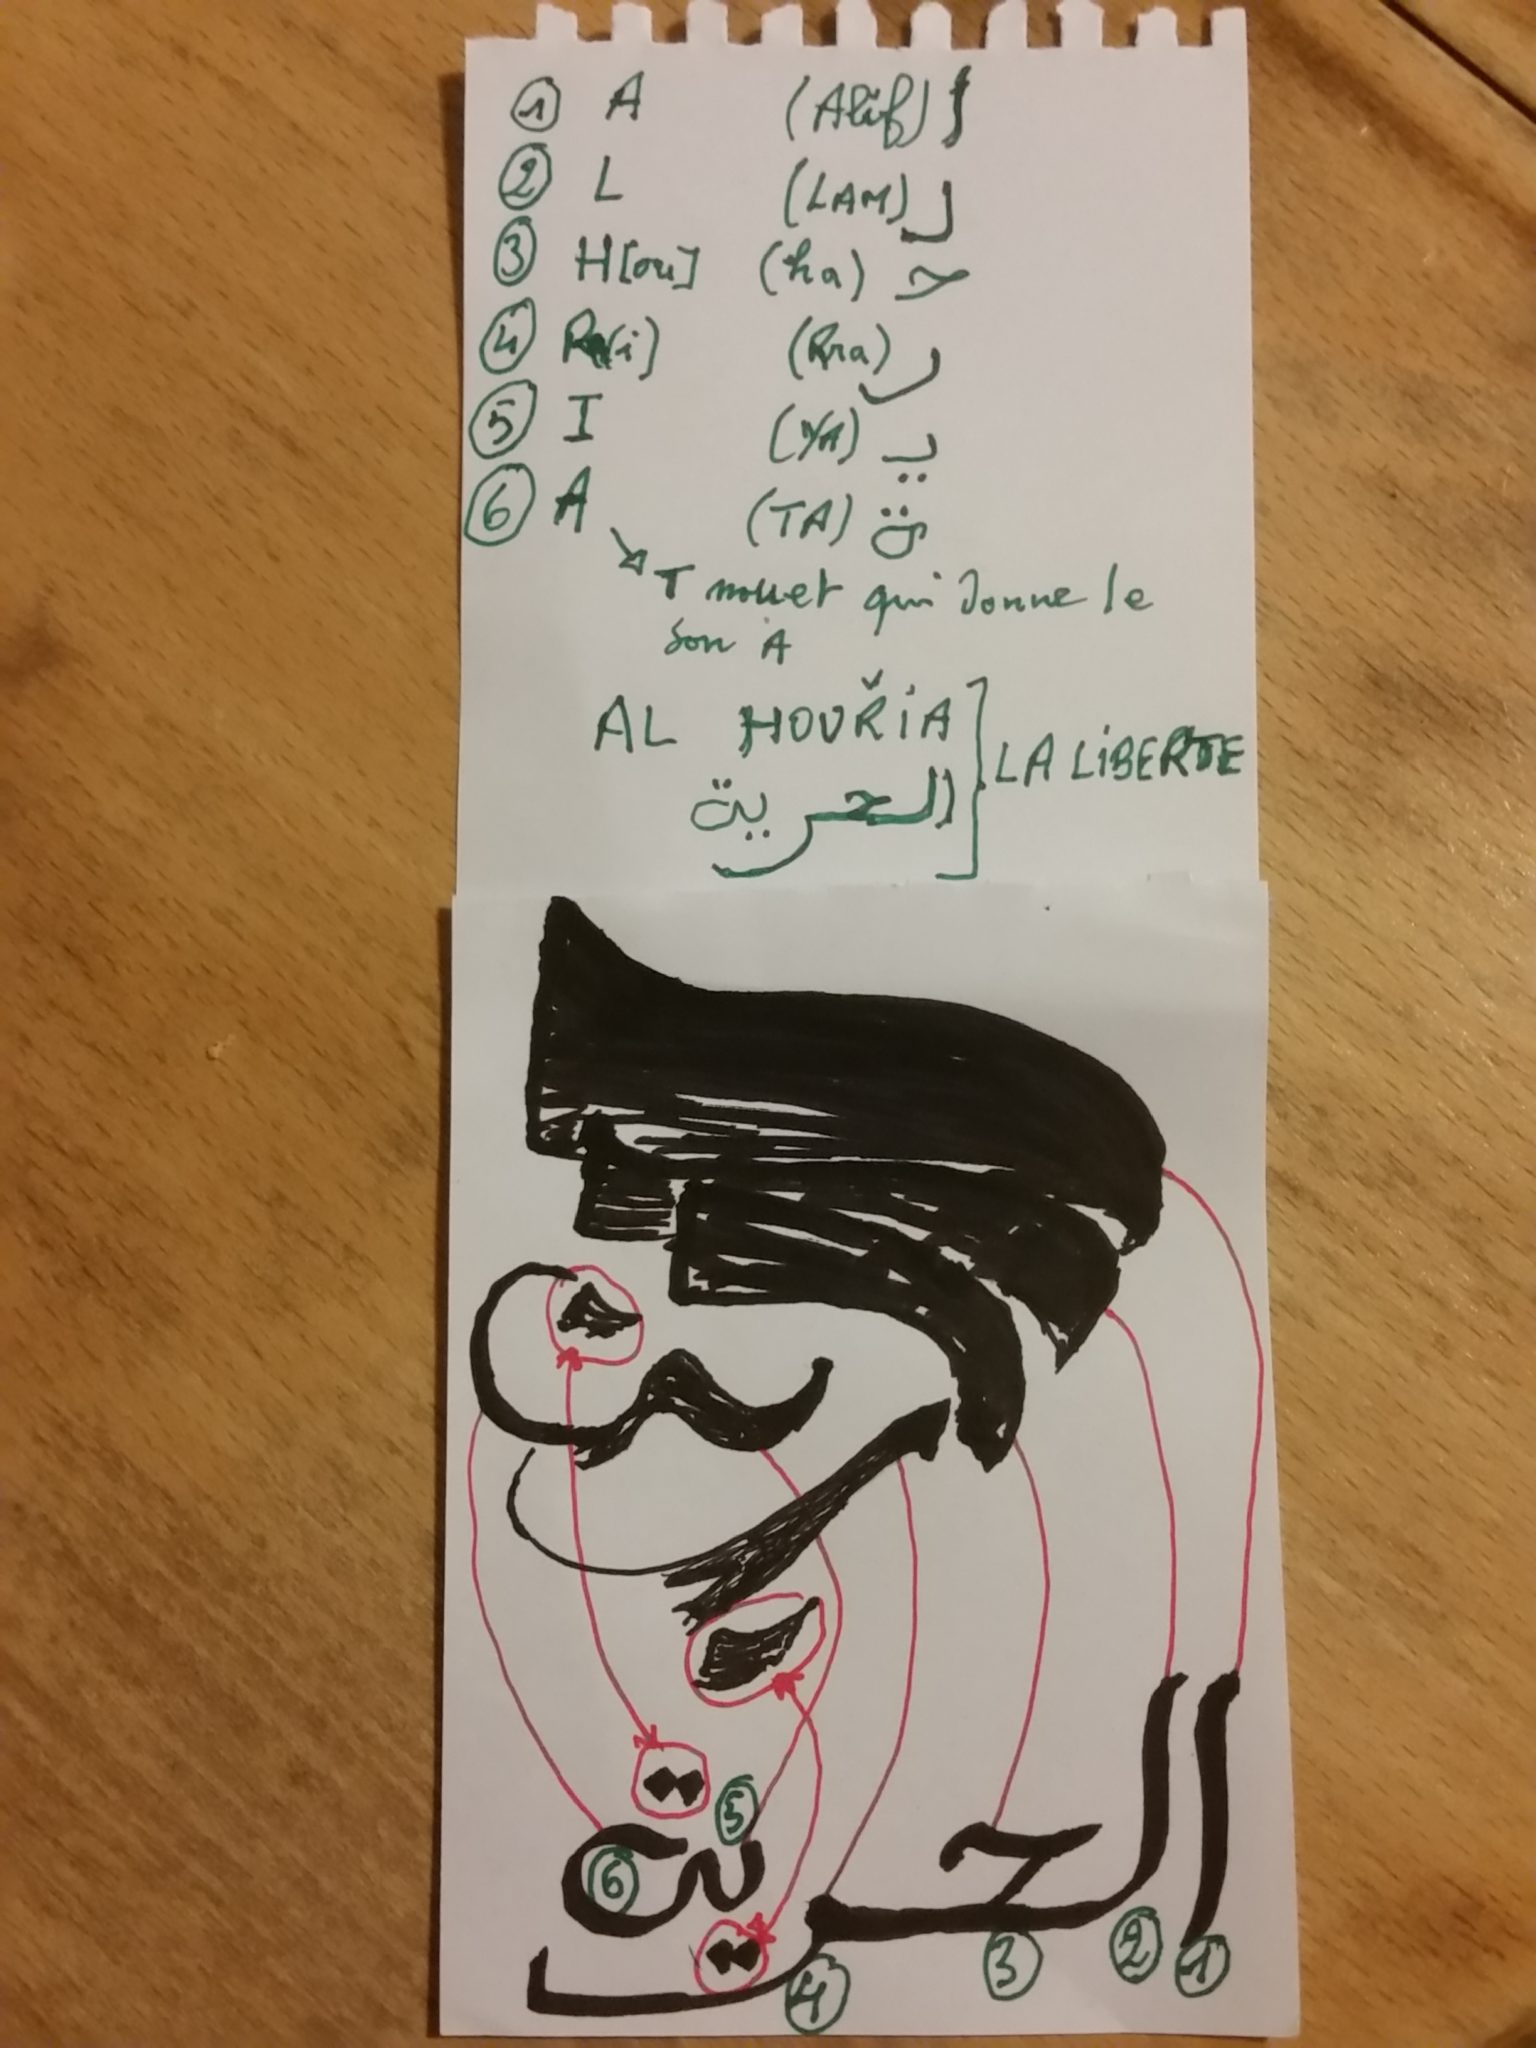 ① A (Alif) ا
② L (LAM) لـ
③ H[ou] (ha) حـ
④ R(i) (Rra) ر
⑤ I (YA) يـ
⑥ A (TA) ة
T muet qui donne le
son A
AL HOUŘiA
الحرية
LA LiBERTE
الحرية
⑤
⑥
④ ③ ② ①